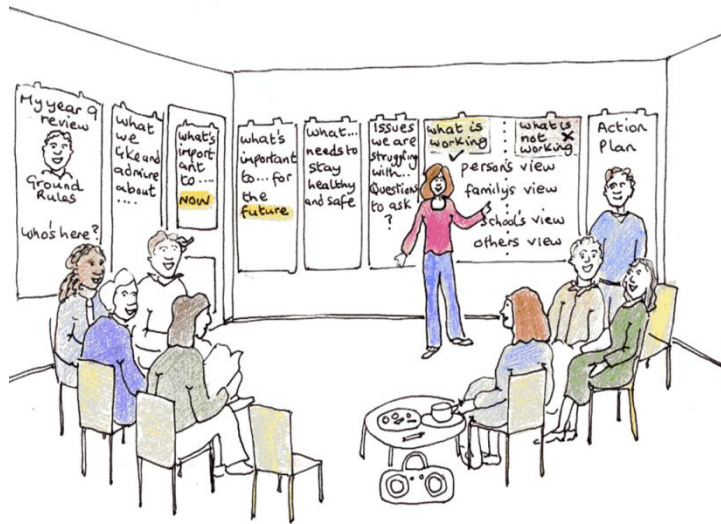 My year 9
review
Ground
Rules
Who's here?
What
we
like and
admire
about
....
what's
import
ant
to ....
NOW
what's
important
to... for
the
future
what...
needs to
stay
healthy
and safe
Issues
we are
struggling
with...
Questions
to ask
?
what is
working
✓
what is
not
working
X
person's view
family's view
school's view
others view
Action
Plan